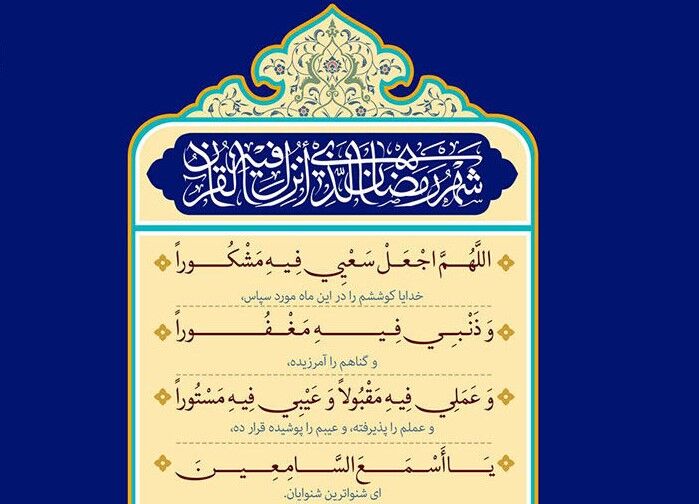 شهر رمضان الذي أنزل فيه القرآن
اللَّهُمَّ اجْعَلْ سَعْيِي فِيهِ مَشْكُوراً
خدایا کوششم را در این ماه مورد سپاس،
وَ ذَنْبِي فِيهِ مَغْفُوراً
و گناهم را آمرزیده،
وَ عَمَلِي فِيهِ مَقْبُولاً وَ عَيْبِي فِيهِ مَسْتُوراً
و عملم را پذیرفته، و عیبم را پوشیده قرار ده،
يَا أَسْمَعَ السَّامِعِينَ
ای شنواترین شنوایان.